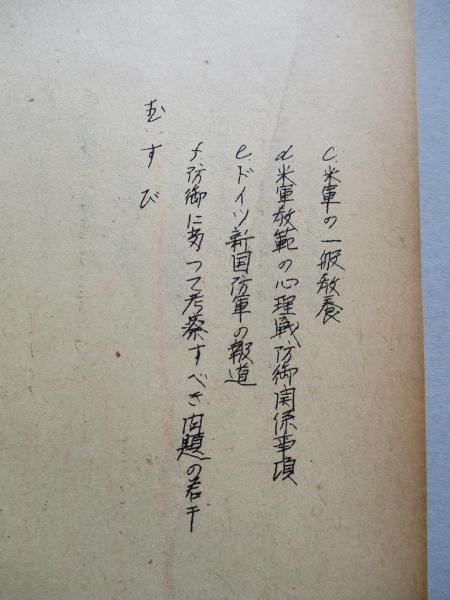 c.米軍の一般教養
d.米軍教範の心理戦防御関係事項
e.ドイツ新国防軍の報道
f.防御に当つて考察すべき問題の若干
むすび